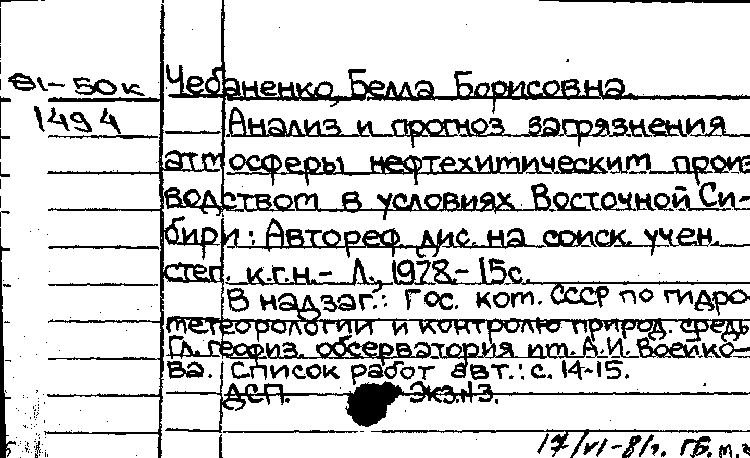 81-50к Чебаненко, Белла Борисовна.
1494 Анализ и прогноз загрязнения
атмосферы нефтехимическим произ
водством в условиях Восточной Си-
бири: Автореф. дис. на соиск. учен.
степ. к.г.н. - Л., 1978. - 15с.
В надзаг.: Гос. ком. СССР по гидро-
метеорологии и контролю природ. среды
Гл. геофиз. обсерватория им. А.И. Воейко-
ва. Список работ авт.: с. 14-15.
ДСП. Экз.№3.
17/VI-81г. ГБ.